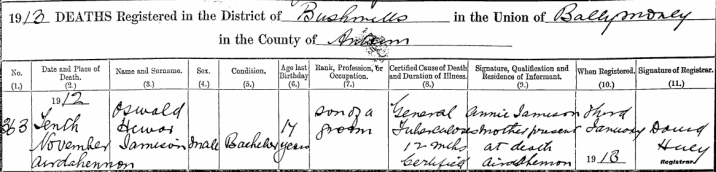 1913 DEATHS Registered in the District of Bushmills in the Union of Ballymoney
in the County of Antrim
No. (1.)
Date and Place of Death. (2.)
Name and Surname. (3.)
Sex. (4.)
Condition. (5.)
Age last Birthday (6.)
Rank, Profession, or Occupation. (7.)
Certified Cause of Death and Duration of Illness. (8.)
Signature, Qualification and Residence of Informant. (9.)
When Registered. (10.)
Signature of Registrar. (11.)
363
1912
Tenth
November
Airdahennon
Oswald
Jamison
male
Bachelor
17
years
son of a
groom
General
Tuberculosis
12 mths
Certified
Annie Jamison
mother present
at death
Third
January
1913
David
Huey
Registrar.